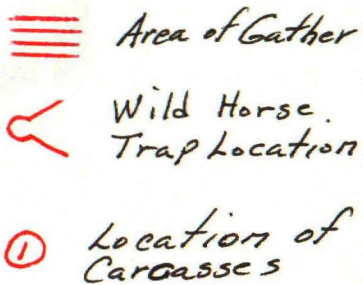 Area of Gather
Wild Horse.
Trap Location
① Location of
Carcasses